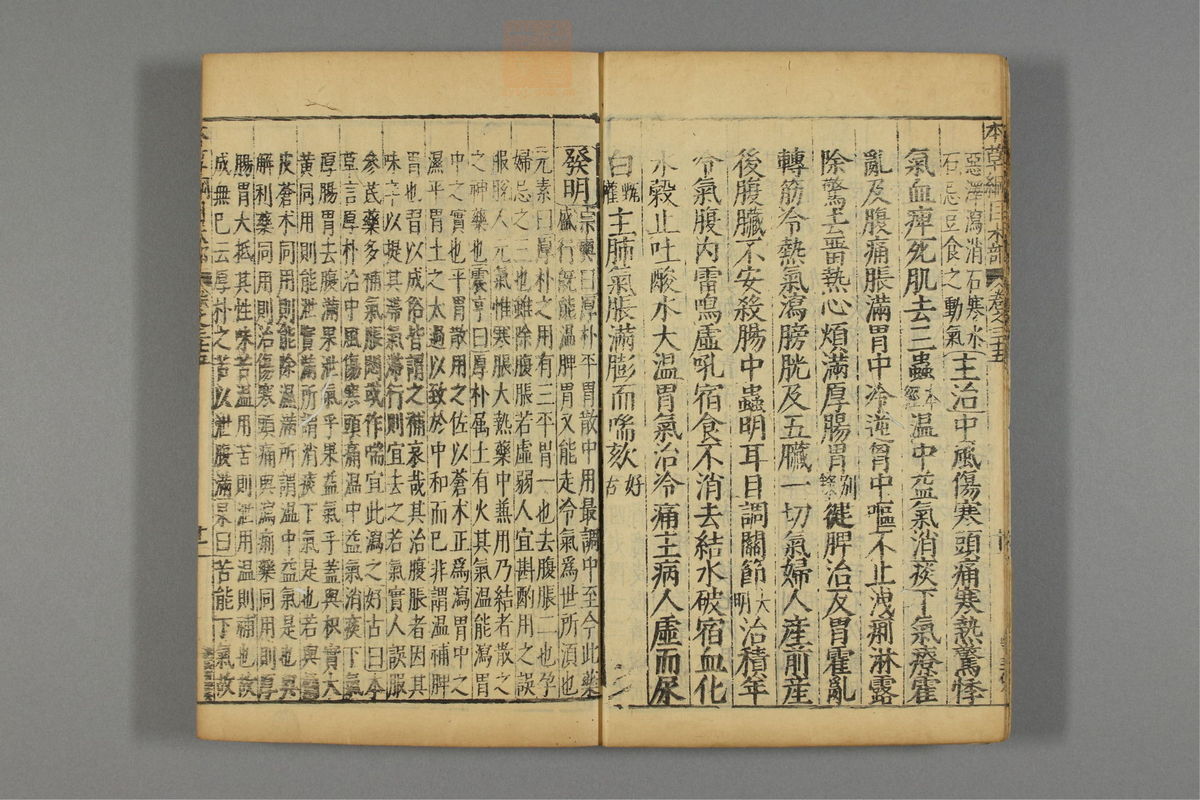 本草綱目木部 卷之三十五
惡澤瀉消石寒水
石忌豆食之動氣主治中風傷寒頭痛寒熱驚悸
氣血痺死肌去三蟲本經溫中益氣消痰下氣療霍
亂及腹痛脹滿胃中冷逆胷中嘔不止洩痢淋露
除驚去留熱心煩滿厚腸胃別錄健脾治反胃霍亂
轉筋冷熱氣瀉膀胱及五臟一切氣婦人產前產
後腹臟不安殺腸中蟲明耳目調關節大明治積年
冷氣腹內雷鳴虛吼宿食不消去結水破宿血化
水穀止吐酸水大溫胃氣治冷痛主病人虛而尿
白甄權主肺氣脹滿膨而喘欬好古
發明宗奭曰厚朴平胃散中用最調中至今此藥
盛行既能溫脾胃又能走冷氣為世所須也
元素曰厚朴之用有三平胃一也去腹脹二也孕
婦忌之三也雖除腹脹若虛弱人宜斟酌用之誤
服脫人元氣惟寒脹大熱藥中兼用乃結者散之
之神藥也震亨曰厚朴属土有火其氣溫能瀉胃
中之實也平胃散用之佐以蒼术正爲瀉胃中之
濕平胃土之太過以致於中和而已非謂溫補脾
胃也習以成俗皆謂之補哀哉其治腹脹者因其
味辛以提其滯氣滯行則宜去之若氣實人誤服
參茋藥多補氣脹悶或作喘宜此瀉之好古曰本
草言厚朴治中風傷寒頭痛溫中益氣消痰下氣
厚腸胃去腹滿果泄氣乎果益氣乎蓋與枳實大
黃同用則能泄實滿所謂消痰下氣是也若與
皮蒼术同用則能除濕滿所謂溫中益氣是也與
解利藥同用則治傷寒頭痛與瀉痢藥同用則厚
腸胃大抵其性味苦溫用苦則泄用溫則補也故
成無已云厚朴之苦以泄腹滿杲曰苦能下氣故